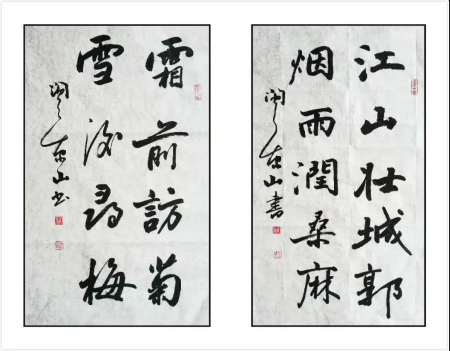 江山壮城郭
烟雨潤桑麻
东山書
霜前訪菊
雪後尋梅
东山书